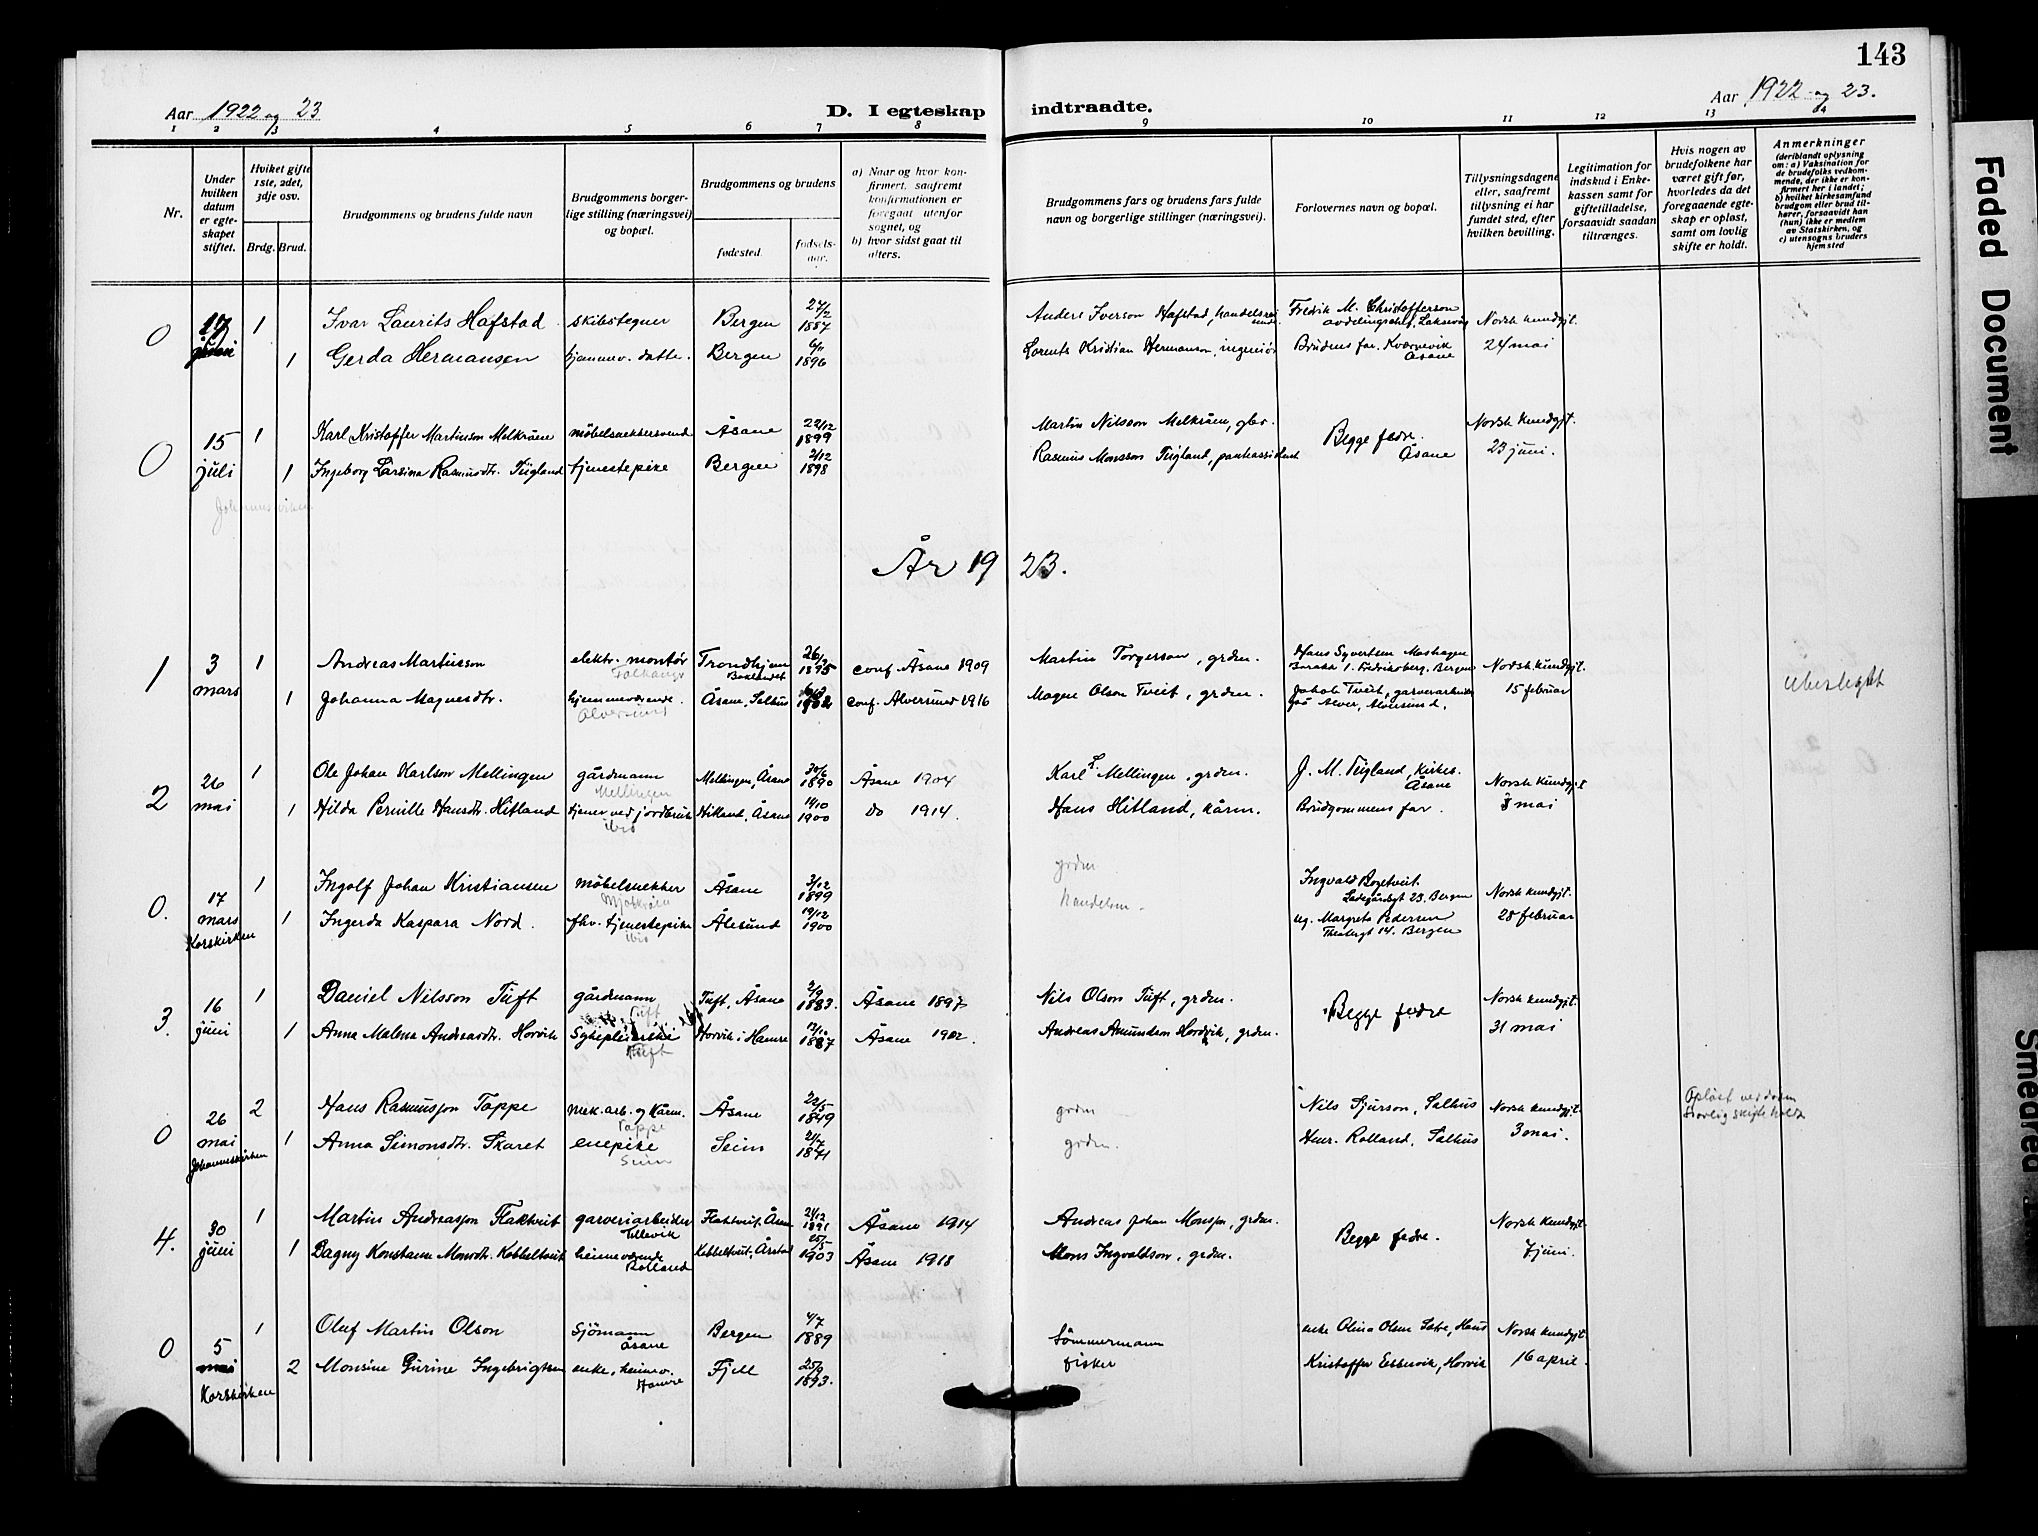 143
Aar 1922 og 23
D. I egteskap indtraadte.
Aar 1922 og 23.
1 2 3 4 5 6 7 8 9 10 11 12 13 14
Nr.
Under hvilken datum er egteskapet stiftet.
Hvilket gifte 1ste, 2det, 3dje osv.
Brdg. Brud.
Brudgommens og brudens fulde navn
Brudgommens borgerlige stilling (næringsvei) og bopæl.
Brudgommens og brudens
fødested.
fødselsaar.
a) Naar og hvor konfirmert, saafremt konfirmationen er foregaat utenfor sognet, og
b) hvor sidst gaat til alters.
Brudgommens fars og brudens fars fulde navn og borgerlige stillinger (næringsvei).
Forlovernes navn og bopæl.
Tillysningsdagene eller, saafremt tillysning ei har fundet sted, efter hvilken bevilling.
Legitimation for indskud i Enkekassen samt for giftetilladelse, forsaavidt saadan tiltrænges.
Hvis nogen av brudefolkene har været gift før, hvorledes da det foregaaende egteskap er opløst, samt om lovlig skifte er holdt.
Anmerkninger
(deriblandt oplysning om: a) Vaksination for de brudefolks vedkommende, der ikke er konfirmert her i landet; b) hvilket kirkesamfund brudgom eller brud tilhører, forsaavidt han (hun) ikke er medlem av Statskirken, og c) utensogns bruders hjemsted
0 1 Ivar Laurits Hafstad skibstegner Bergen 27/2 1887 Anders Iverson Hafstad, Fredrik M. Christofferson avdelingschef, Laksevåg Norsk kundgjt.
1 Gerda Hermansen hjemmev. datter Bergen 6/11 1896 Lorents Kristian Hermanson, ingeniør Brudens far. Kværnevik Åsane 24 mai
0 15 juli 1 Karl Kristoffer Martinson Melkråen möbelsnekkersvend Åsane 22/12 1899 Martin Nilsson Melkråen, gbr. Begge fedre. Åsane Norsk kundgjt.
1 Ingeborg Larsina Rasmusdtr. Tügland tjenestepike Bergen 2/12 1898 Rasmus Monsson Tügland, 23 juni.
År 1923.
1 3 mars 1 Andreas Martinson elektr. montör Trondhjem Baklandet 26/ 1895 conf. Åsane 1909 Martin Torgerson, grdm. Hans Syvertsen Bergen Norsk kundgjt.
1 Johanna Magnesdtr. hjemmeværende. Alversund Åsane, Salhus conf. Alversund 1916 Magne Olson Tveit, grdm. Jakob Tveit, garveriarbeider Alver, Alversund. 15 februar
2 26 mai 1 Ole Johan Karlson Mellingen gårdmann Mellingen Mellingen, Åsane 30/6 1890 Åsane 1904 Karl L. Mellingen, grdm. J. M. Tügland, kirkes. Åsane Norsk kundgjt
1 Hilda Pernille Hansdtr. Hitland tjener ved jordbruk ibid Hitland, Åsane 14/10 1900 Do 1914. Hans Hitland, kårm. Brudgommens far. 8 mai
0. 17 mars Korskirken 1 Ingolf Johan Kristiansen möbelsnekker Åsane 3/12 1899 grdm Ingvald Ladegårdsgt 23. Bergen Norsk kundgjt.
1 Ingerda Kaspara Nord. fhv. tjenestepike ibid Ålesund 19/12 1900 handelsm. ug. Margrete Pedersen Theatergt 14. Bergen 28 februar
3. 16 juni 1 Daniel Nilsson Tuft gårdmann Tuft Tuft, Åsane 2/9 1883. Åsane 1897 Nils Olson Tuft, grdm. Begge fedre Norsk kundgjt.
1 Anna Malena Andreasdtr. Horvik Sykepleierske Horvik i Hamre 12/10 1887 Åsane 1902. Andreas Amundson Hordvik, grdm. 31 mai
0 26 mai Johanneskirken 2 Hans Rasmusson Tappe mek. arb. og kårm. Tappe Åsane 22/5 1849 grdm Nils Sjurson, Salhus Norsk kundgjt. Opløst ved døden
1 Anna Simonsdtr. Skaret enepike Seim Seim 2/7 1871 grdm. Henr. Rolland, Salhus 3 mai.
4. 30 juni 1 Martin Andreasson Flaktveit garveriarbeider Tellevik Flaktveit, Åsane 24/12 1891 Åsane 1914 Andreas Johan Monson, grdm. Begge fedre. Norsk kundgjt.
1 Dagny Konstanse Monsdtr. Kobbeltveit heimeværende Rolland Kobbeltveit, Årstad 25/5 1903 Åsane 1918 Mons Ingvaldson, grdm. 7 juni.
0 5 mai Korskirken 1 Oluf Martin Olson Sjömann Åsane Bergen 4/7 1889 tömmermann enke Olina Olsen Sætre, Haus Norsk kundgjt.
2 Monsine Gurine Ingebrigtsen enke, heimev. Hamre Fjell 25/9 1893. fisker Kristoffer Horvik 16 april.